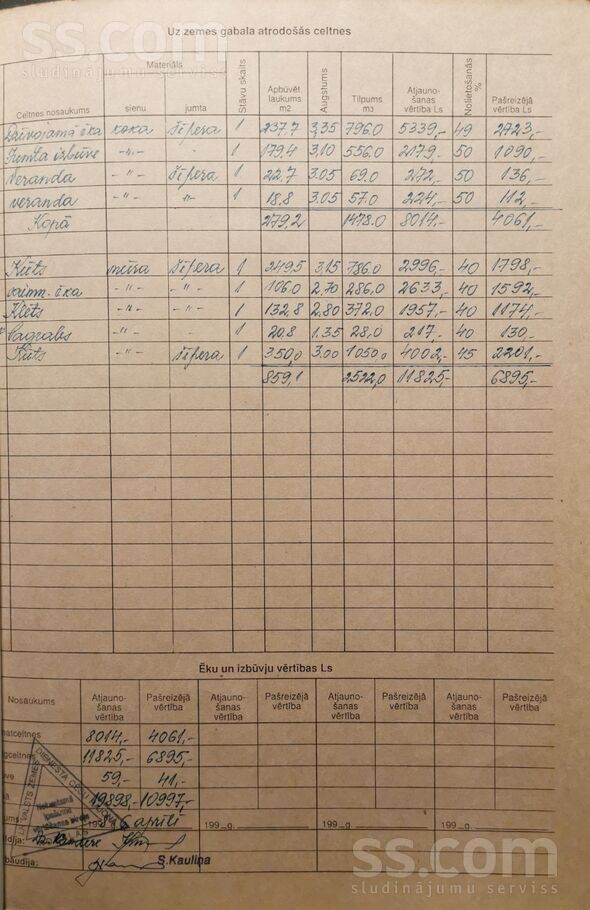 ss.com
sludinājumu serviss
Uz zemes gabala atrodošās celtnes
Celtnes nosaukums
Materiāls
sienu
jumta
Stāvu skaits
Apbūvēt laukums m2
Augstums
Tilpums m3
Atjauno-šanas vērtība Ls
Nolietošanās %
Pašreizējā vērtība Ls
Dzīvojamā ēka koka šīfera 1 237.7 3,35 796.0 5339,- 49 2723,-
Jumta izbūve -"- - 1 179.4 3.10 556.0 2179.- 50 1090,-
Veranda -"- šīfera 1 22.7 3.05 69.0 272,- 50 136,-
veranda -"- -"- 1 18.8 3.05 57.0 224,- 50 112,-
Kopā 279,2 1478.0 8014,- 4061,-
Kūts mūra šīfera 1 249.5 3.15 786.0 2996,- 40 1798,-
saimn. ēka -"- -"- 1 106.0 2.70 286.0 2633,- 40 1592,-
Klēts -"- -"- 1 132,8 2.80 372.0 1957,- 40 1174,-
Pagrabs -"- - 1 20.8 1.35 28.0 217.- 40 130,-
Kūts -"- šīfera 1 350,0 3.00 1050.0 4002,- 45 2201,-
859,1 2522,0 11825,- 6895,-
Ēku un izbūvju vērtības Ls
Nosaukums
Atjauno-šanas vērtība Pašreizējā vērtība Atjauno-šanas vērtība Pašreizējā vērtība Atjauno-šanas vērtība Pašreizējā vērtība Atjauno-šanas vērtība Pašreizējā vērtība
8014,- 4061,-
11825,- 6895,-
59,- 41,-
19898,- 10997,-
aprīlī 199 g. 199 g. 199 g.
S.Kauliņa
ss.com
sludinājumu serviss